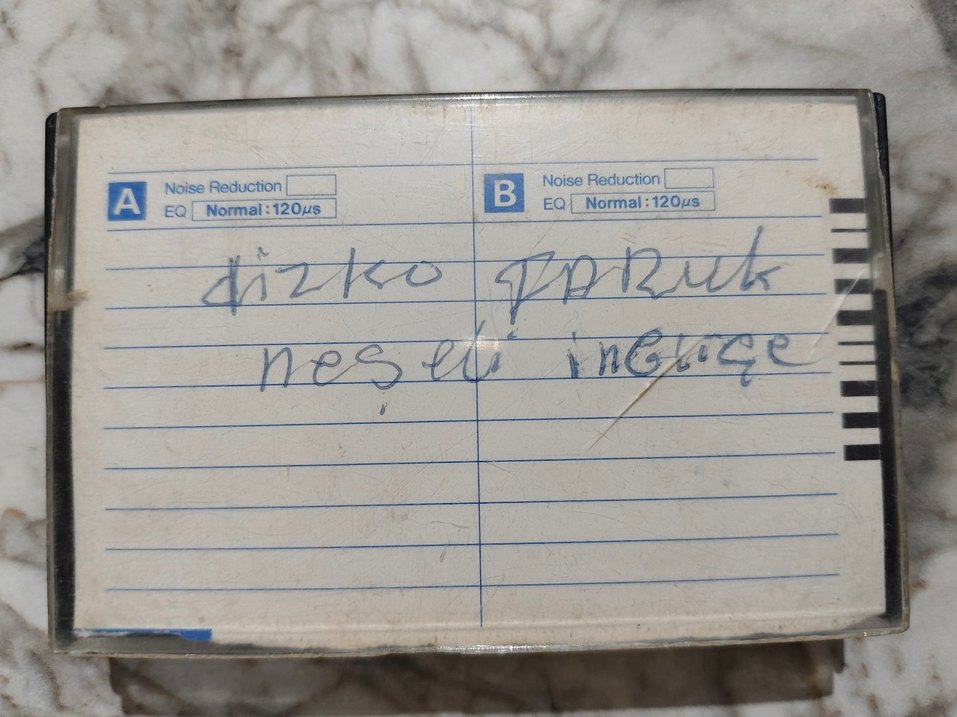 A Noise Reduction B Noise Reduction
EQ Normal:120µs EQ Normal:120µs
dizko FARuk
neşeli inGilişçe